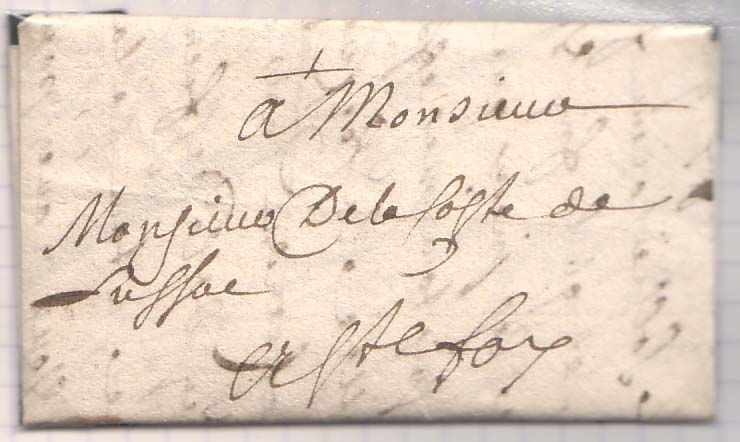 a Monsieur
Monsieur De la Coste de
Lussac
a Ste foy